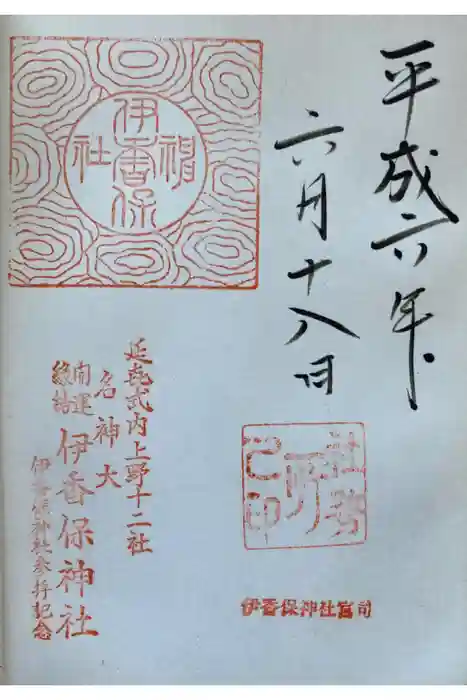 平成六年
六月十八日
伊香保
神社
延喜式内上野十二社
名神大
開運
縁結
伊香保神社
伊香保神社参拝記念
社務所之印
伊香保神社宮司